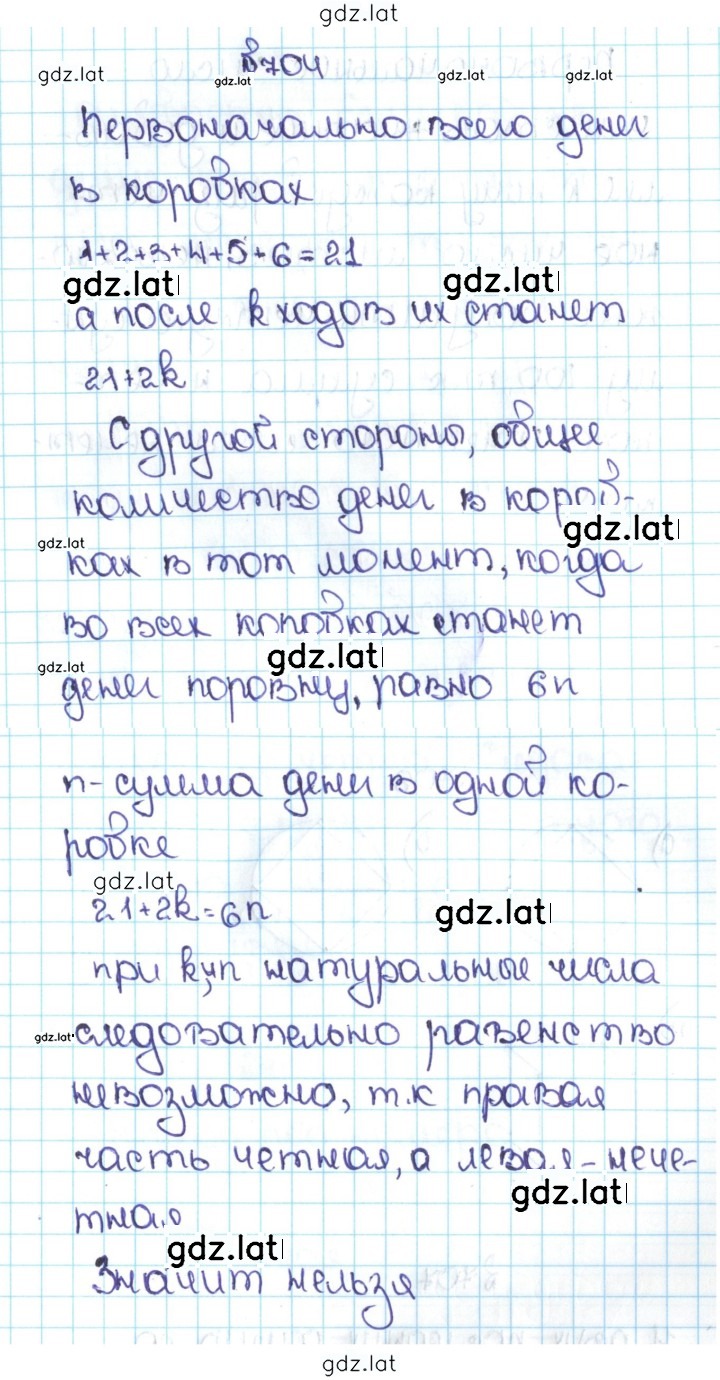 gdz.lat
в704
gdz.lat gdz.lat gdz.lat gdz.lat
Первоначально всего денег
в коробках
1+2+3+4+5+6=21
gdz.lat gdz.lat
а после k ходов их станет
21+2k
С другой стороны, общее
количество денег в короб-
gdz.lat gdz.lat
ках в тот момент, когда
во всех коробках станет
gdz.lat gdz.lat
денег поровну, равно 6n
n-сумма денег в одной ко-
робке
gdz.lat
21+2k=6n gdz.lat
при k и n натуральные числа
gdz.lat следовательно равенство
невозможно, т.к правая
часть четная, а левая-нече-
gdz.lat
тная
gdz.lat
Значит нельзя
gdz.lat